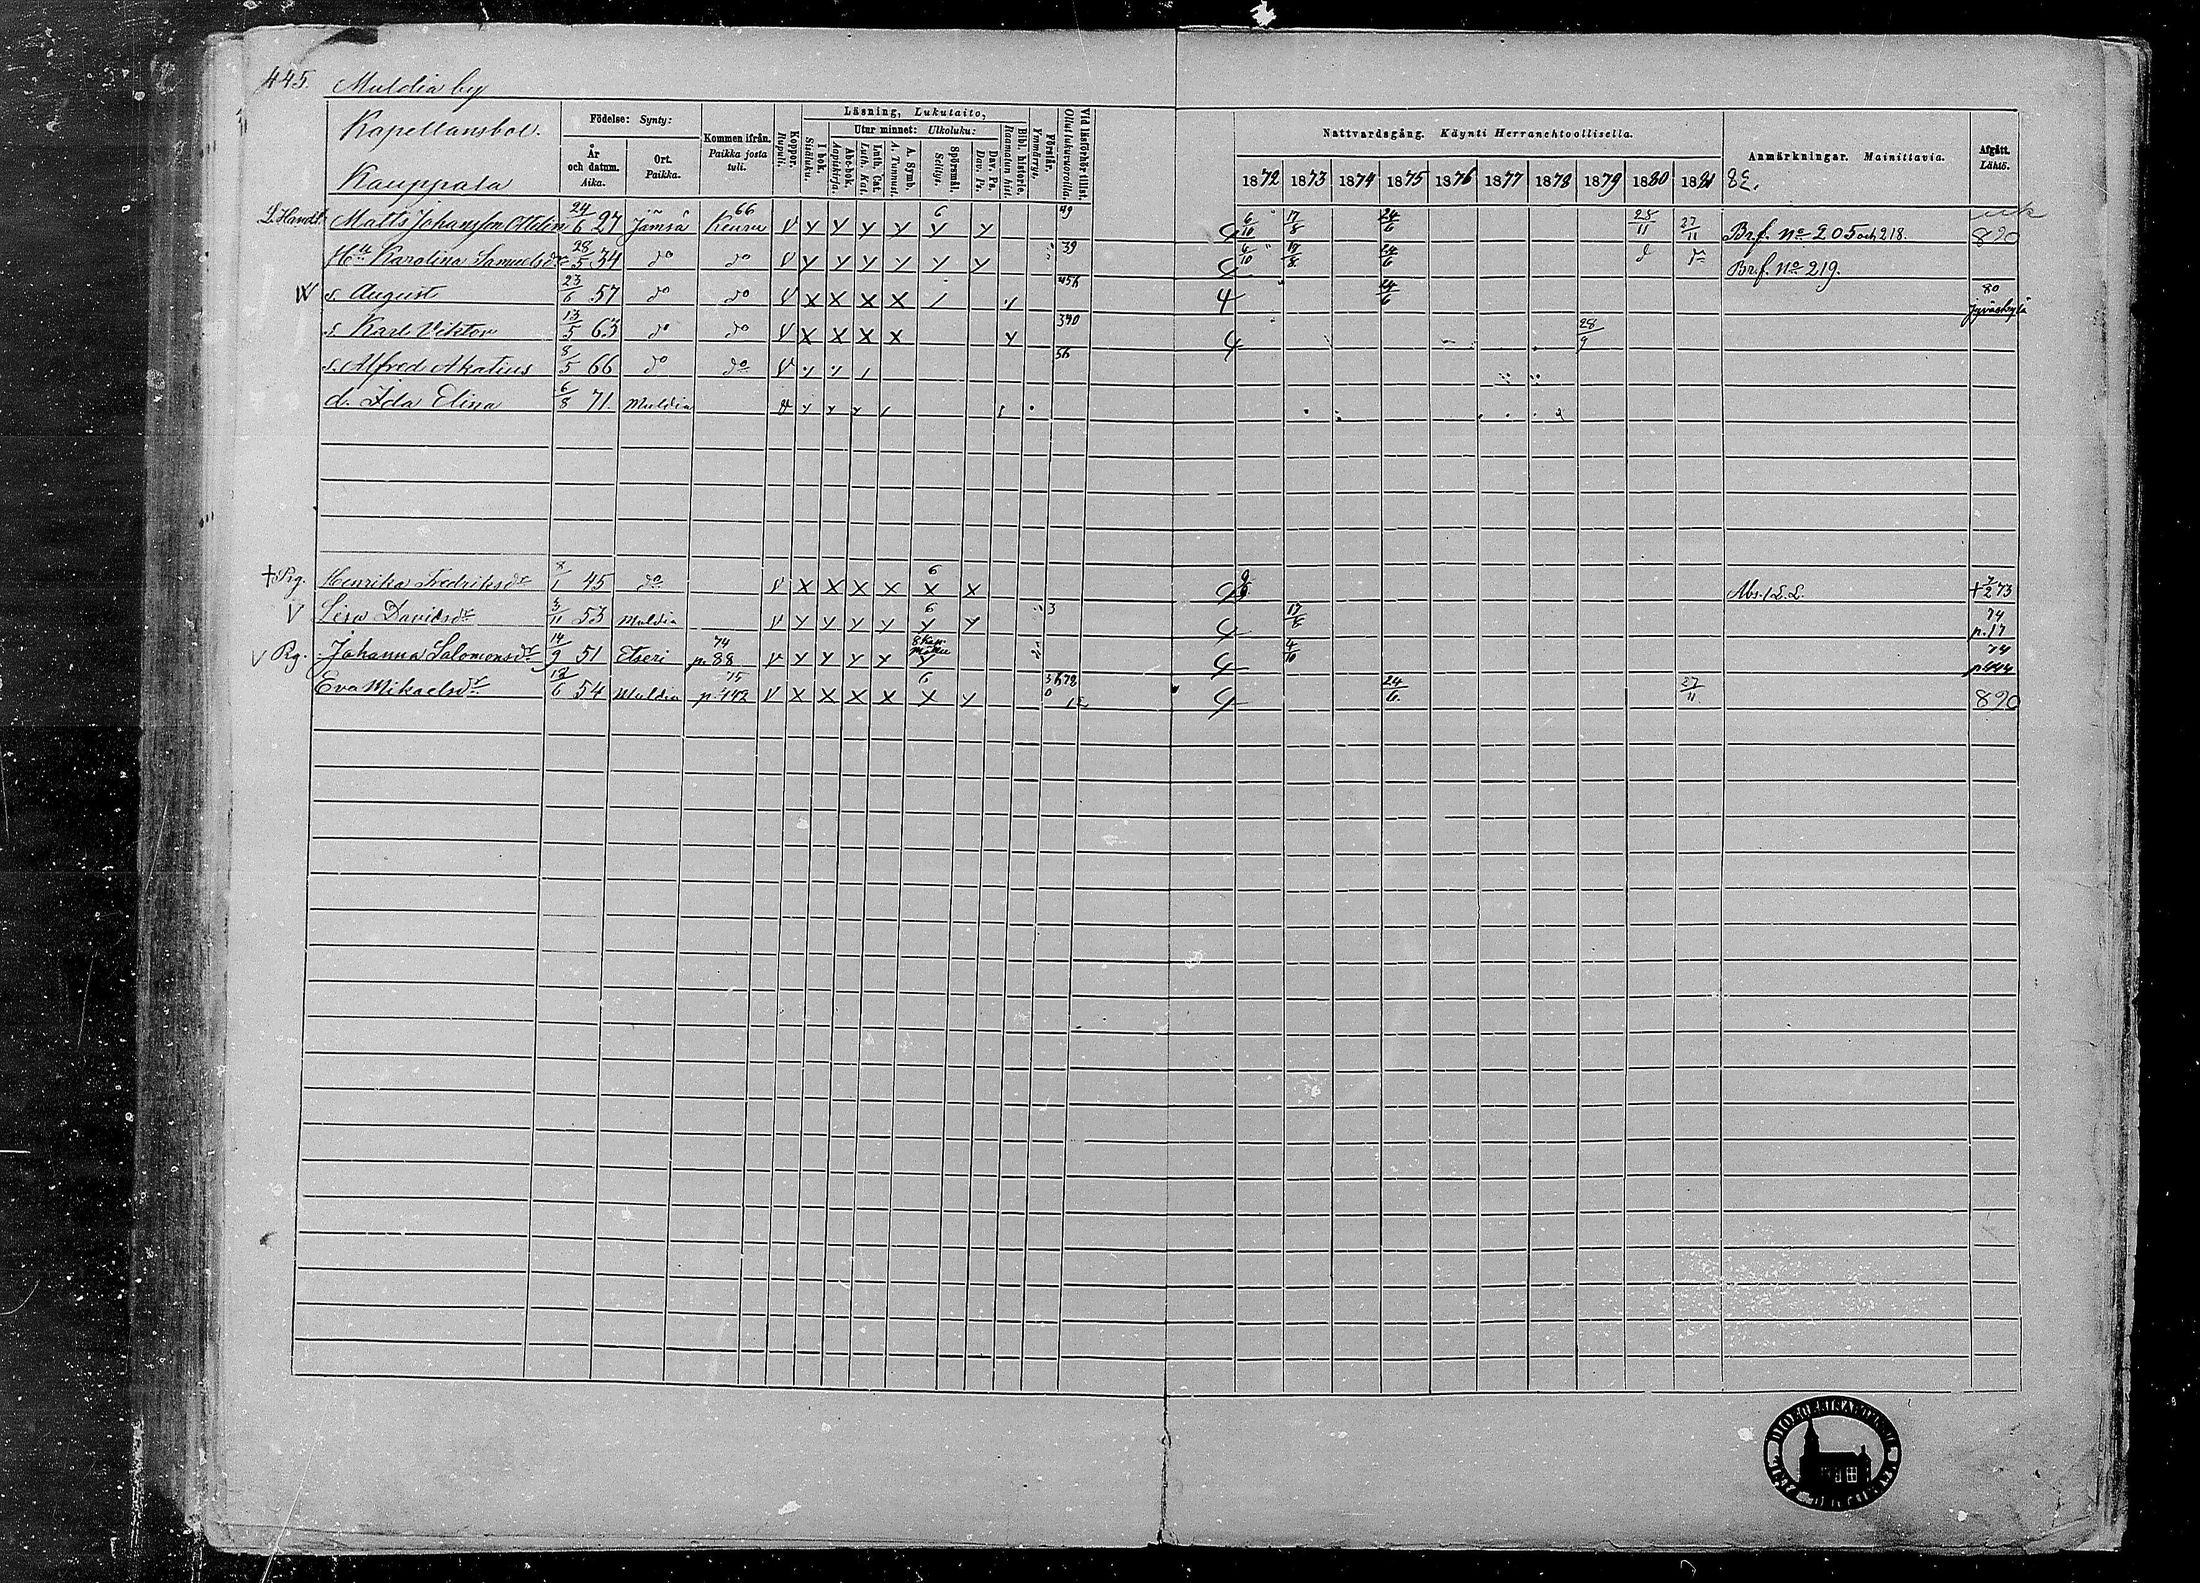 445. Muldia by
Kapellansbol.
Kauppala
Födelse: Synty:
År och datum. Aika.
Ort. Paikka.
Kommen ifrån. Paikka josta tuli.
Koppor. Rupuli.
Läsning, Lukutaito,
I bok. Sisäluku.
Utur minnet: Ulkoluku:
Abc-bok. Aapiskirja.
Luth. Cat. Luth. Kat.
A. Symb. A. Tunnust.
Spörsmål. Selitys.
Dav. Ps. Dav. Ps.
Bibl. historie. Raamatun hist.
Förstår. Ymmärrys.
Vid läsförhör tillst. Ollut lukuvuoroilla.
Nattvardsgång. Käynti Herranehtoollisella.
1872 1873 1874 1875 1876 1877 1878 1879 1880 1881 82.
Anmärkningar. Mainittavia.
Afgått. Lähtö.
Matts Johansson 24/6 27 Jämsä 66 Keuru V Y Y Y Y 6 Y Y 49 4 6/10 17/8 24/6 25/11 27/11 Br.f. No 205 och 218. 890
Hu Karolina Samuelsdr 28/5 34 do do V Y Y Y Y Y Y 39 4 6/10 17/8 24/6 Br.f. No 219.
s. August 23/6 57 do do V X X X X / 4 24/6 80 Jyväskylä
s. Karl Viktor 13/5 63 do do V X X X X Y 340 4 28/9
s. Alfred Akatius 8/5 66 do do V 56
d. Ida Elina 6/8 71. Muldia
† Pig. Henrika Fredriksdr 8/1 45 do V X X X X 6 X X Abs. † 7/2 73
V Lisa Davidsdr 3/11 53 Muldia V Y Y Y Y 6 Y Y 3 4 17/8 74 p. 17
V Pig. Johanna Salomonsdr 14/9 51 Etseri 74 p. 88 V Y Y Y Y Y 4 4/10 74 p 444
Eva Mikaelsdr 12/6 54 Muldia 75 p. 442 V X X X X 6 X Y 4 24/6. 27/11. 890